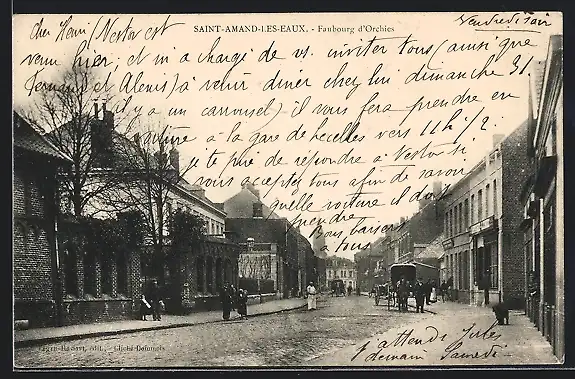 SAINT-AMAND-LES-EAUX. - Faubourg d'Orchies
Vendredi soir
Cher Henri (Nestor est
venu hier, et m'a chargé de vs. inviter tous (ainsi que
Fernand et Alexis) à venir diner chez lui dimanche 31.
(il y a un carrousel) il vous fera prendre en
voiture à la gare de hecelles vers 11h 1/2
je te prie de répondre à Nestor si
vous acceptez tous afin de savoir
quelle voiture il doit
prendre
Bons baisers
à tous
Jules
Attends
demain Samedi
édit., - Cliché Delannois